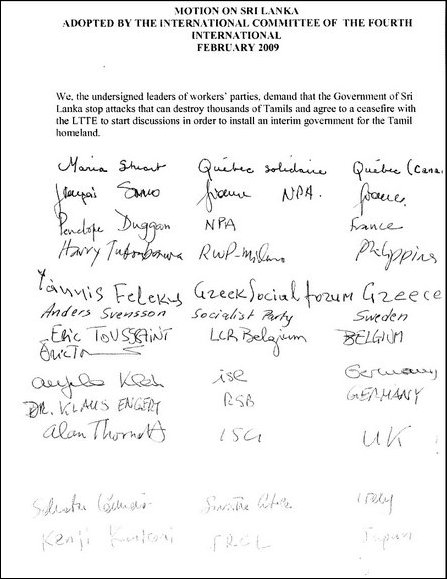 MOTION ON SRI LANKA
ADOPTED BY THE INTERNATIONAL COMMITTEE OF THE FOURTH
INTERNATIONAL
FEBRUARY 2009
We, the undersigned leaders of workers' parties, demand that the Government of Sri
Lanka stop attacks that can destroy thousands of Tamils and agree to a ceasefire with
the LTTE to start discussions in order to install an interim government for the Tamil
homeland.
Maria Stuart Québec solidaire Québec (Cana.
France NPA. France.
Penelope Duggan NPA France
Harry RWP-Milano Philippins
Yannis Felekis Greek Social forum Greece
Anders Svensson Socialist Party Sweden
Eric TOUSSAINT LCR Belgium BELGIUM
Angela Klein isl Germany
DR. KLAUS ENGERT RSB GERMANY
Alan Thornett UK
Italy
Kenji Japan